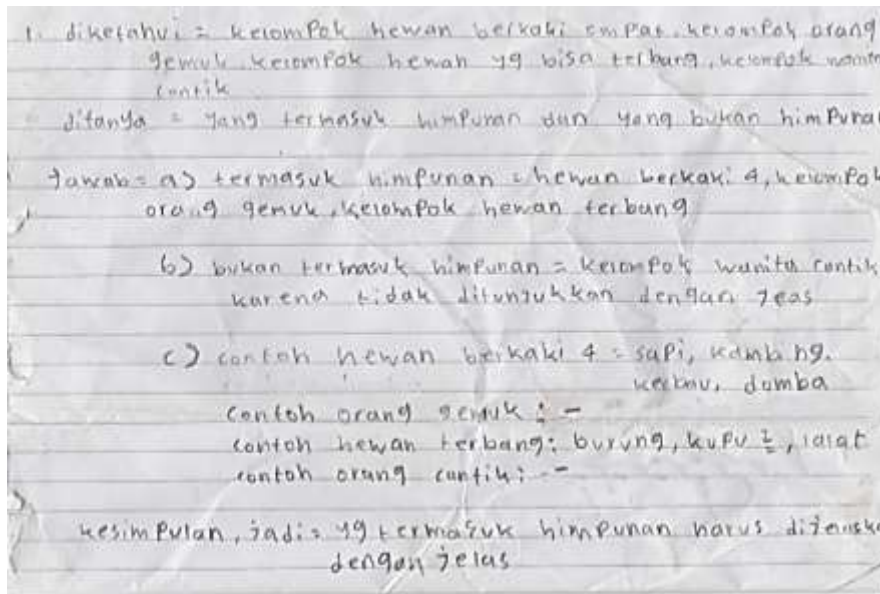 1. diketahui = kelompok hewan berkaki empat, kelompok orang
gemuk, kelompok hewan yg bisa terbang, kelompok wanita
cantik
ditanya = yang termasuk himpunan dan yang bukan himpunan
Jawab = a) termasuk himpunan = hewan berkaki 4, kelompok
orang gemuk, kelompok hewan terbang
b) bukan termasuk himpunan = kelompok wanita cantik
karena tidak ditunjukkan dengan jeas
c) contoh hewan berkaki 4 = sapi, kambing,
kerbau, domba
contoh orang gemuk : -
contoh hewan terbang : burung, kupu2, lalat
contoh orang cantik : -
kesimpulan, jadi = yg termasuk himpunan harus
dengan jelas